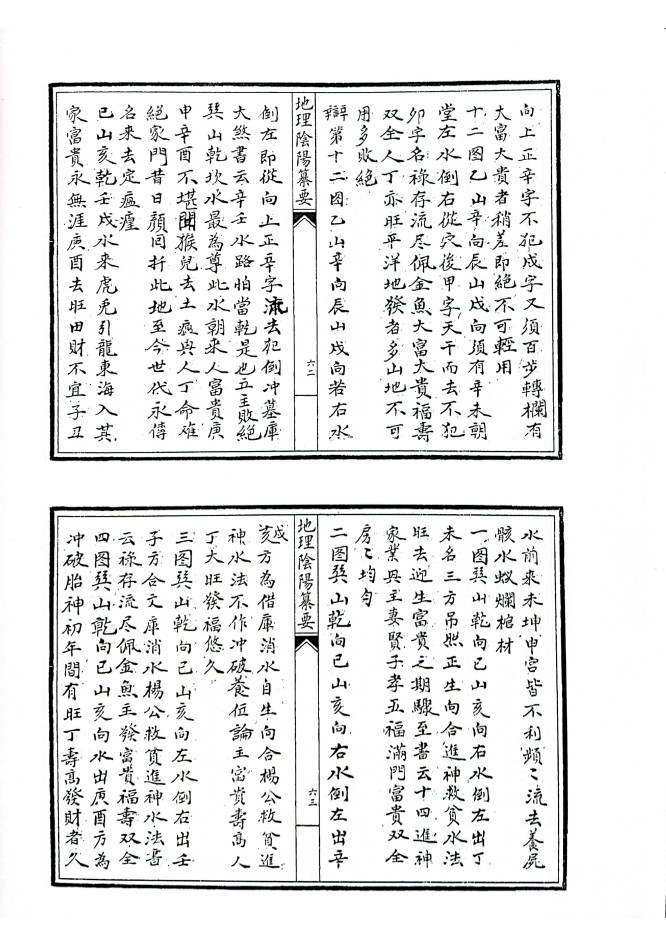 向上正辛字不犯戍字又須百步轉欄有
大富大貴者稍差即絕不可輕用
十二图乙山辛向辰山戍向須有辛未朝
堂左水倒右從穴後甲字天干而去不犯
卯字名祿存流尽佩金魚大富大貴福壽
双全人丁亦旺平洋地發者多山地不可
用多敗絕
辯第十二图乙山辛向辰山戍向若右水
地理陰陽纂要
六二
倒左即從向上正辛字流去犯倒冲墓庫
大煞書云辛壬水路怕當乾是也五主敗絕
巽山乾坎水最為尊此水朝來人富貴庚
申辛酉不堪聞猴兒去土瘟與人丁命难
絕家門昔日顏囘扦此地至今世代永傳
名來去定瘟瘽
巳山亥乾壬戍水來虎兎引龍東海入其
家富貴永無涯庚酉去旺田財不宜子丑
水前來未坤申宮皆不利頻〻流去養屍
骸水蟻爛棺材
一图巽山乾向巳山亥向右水倒左出丁
未名三方吊照正生向合進神救貧水法
旺去迎生富貴之期驟至書云十四進神
家業興主妻賢子孝五福滿門富貴双全
房〻均匀
二图巽山乾向巳山亥向右水倒左出辛
地理陰陽纂要
六三
戍亥方為借庫消水自生向合楊公救貧進
神水法不作冲破養位論主富貴壽高人
丁大旺發福悠久
三图巽山乾向巳山亥向左水倒右出壬
子方合文庫消水楊公救貧進神水法書
云祿存流尽佩金魚主發富貴福壽双全
四图巽山乾向巳山亥向水出庚酉方為
冲破胎神初年間有旺丁壽高發財者久